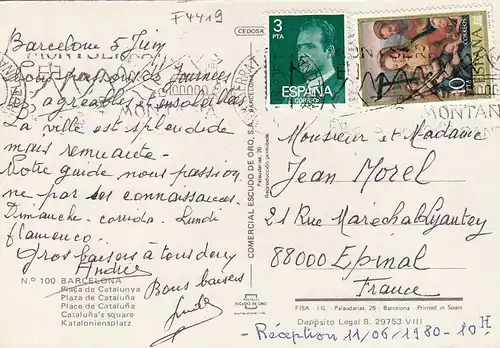 F4419
CEDOSA
3
PTA
ESPAÑA
CORREOS
CORREOS
ESPAÑA
10
MONTAN
Barcelone 5 Juin
Nous passons de Journées
très agréables et ensoleillées
La ville est splendide
mais remuante -
Notre guide nous passion
ne par ses connaissances.
Dimanche - corrida. Lundi
flamenco.
Gros baisers à tous deux
Andrée
Bons baisers
N.º 100 BARCELONA
Plaça de Catalunya
Plaza de Cataluña
Place de Cataluña
Cataluña's square
Kataloniensplatz
COMERCIAL ESCUDO DE ORO, S.A. - BARCELONA
Palaudarias, 26
Reproducción prohibida
POSTALES
ESCUDO DE ORO
Monsieur et Madame
Jean Morel
21 Rue Maréchal Lyautey
88000 Epinal
France
FISA - I.G. - Palaudarias, 26 - Barcelona - Printed in Spain
Depósito Legal B. 29753-VIII
- Réception 11/06/1980 - 10H